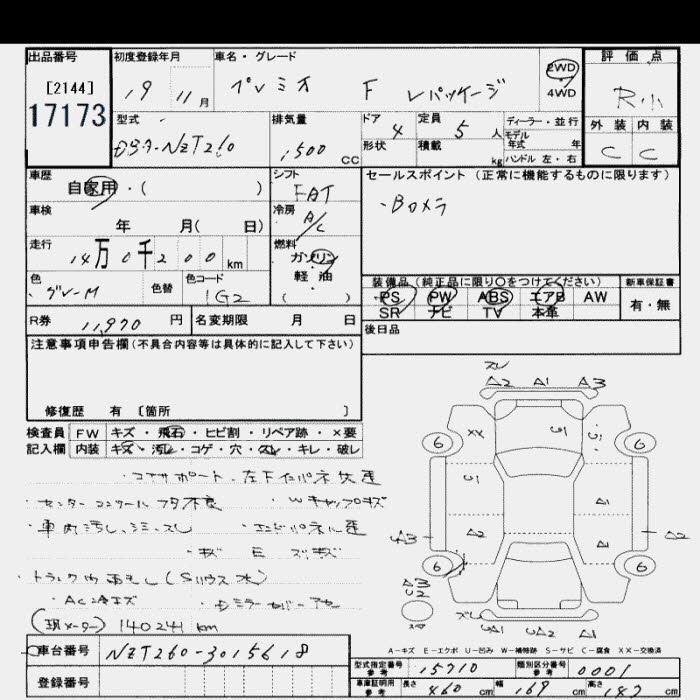 出品番号 初度登録年月 車名・グレード 評価点
[2144] 19 11月 プレミオ F Lパッケージ 2WD 4WD
17173
型式 排気量 ドア 4 定員 5 人 ディーラー・並行 外装 内装
DBA-NZT260 1500 CC 形状 積載 kg モデル年式 年 ハンドル 左・右 C C
車歴 シフト セールスポイント (正常に機能するものに限ります)
自家用・( ) FAT ・Bカメラ
車検 冷房
年 月( 日) A/C
走行 燃料
14万0千200 km ガソリン
色 色替 色コード 軽油 装備品 (純正品に限り○をつけてください) 新車保証書
グレーM 1G2 ( ) PS PW ABS エアB AW 有・無
SR ナビ TV 本革
R券 11,970 円 名変期限 月 日 後日品
注意事項申告欄 (不具合内容等は具体的に記入して下さい)
修復歴 有 [箇所 ]
検査員 FW キズ・飛石・ヒビ割・リペア跡・×要
記入欄 内装 キズ・汚レ・コゲ・穴・スレ・キレ・破レ
・センターコンソールフタ不良 ・Wキャップキズ
・車内汚レ、シミ、スレ
・トランク内雨もレ(Sハウス水)
(現メーター) 140241 km
A2 A1 A3
XX
6 6
A1
A2 A1
A3 A2
6 6
A1 A1
A-キズ E-エクボ U-凹み W-補修跡 S-サビ C-腐食 XX-交換済
車台番号 NZT260-3015618
登録番号
型式指定番号 参考 15710 類別区分番号 参考 0001
車庫証明用 参考 長さ 460 cm 幅 169 cm 高さ 147 cm